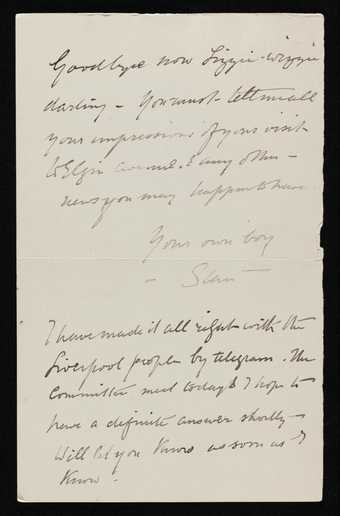 Goodbye now Lizzie-wizzie
darling – You must tell me all
your impressions of your visit
to Elgin Avenue. & any other –
news you may happen to have
Your own boy
– Stan
I have made it all right with the
Liverpool people by telegram. The
Committee meet today & I hope to
have a definite answer shortly –
Will let you know as soon as I
know.